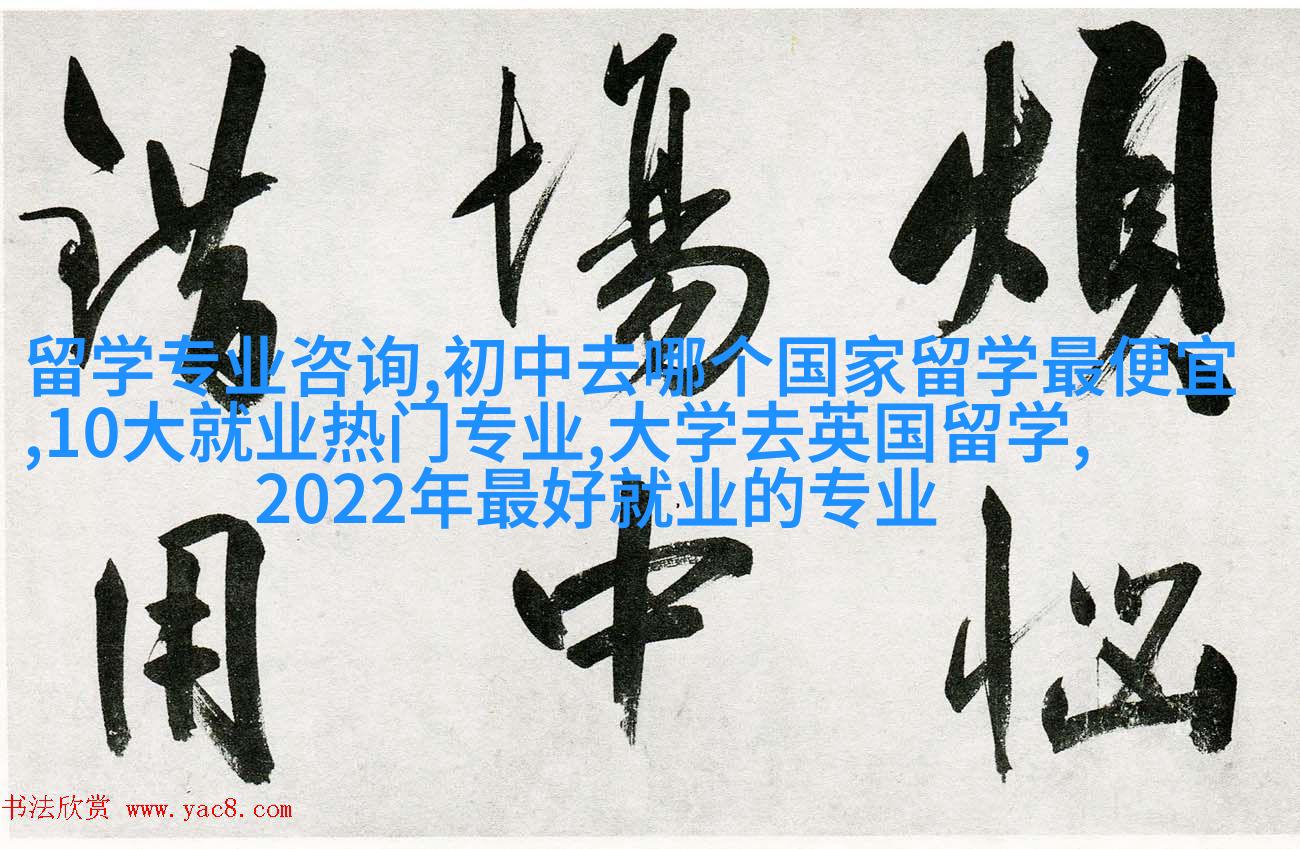 煩惱
場中
錯用
留学专业咨询,初中去哪个国家留学最便宜
,10大就业热门专业,大学去英国留学,
2022年最好就业的专业
书法欣赏 www.yac8.com